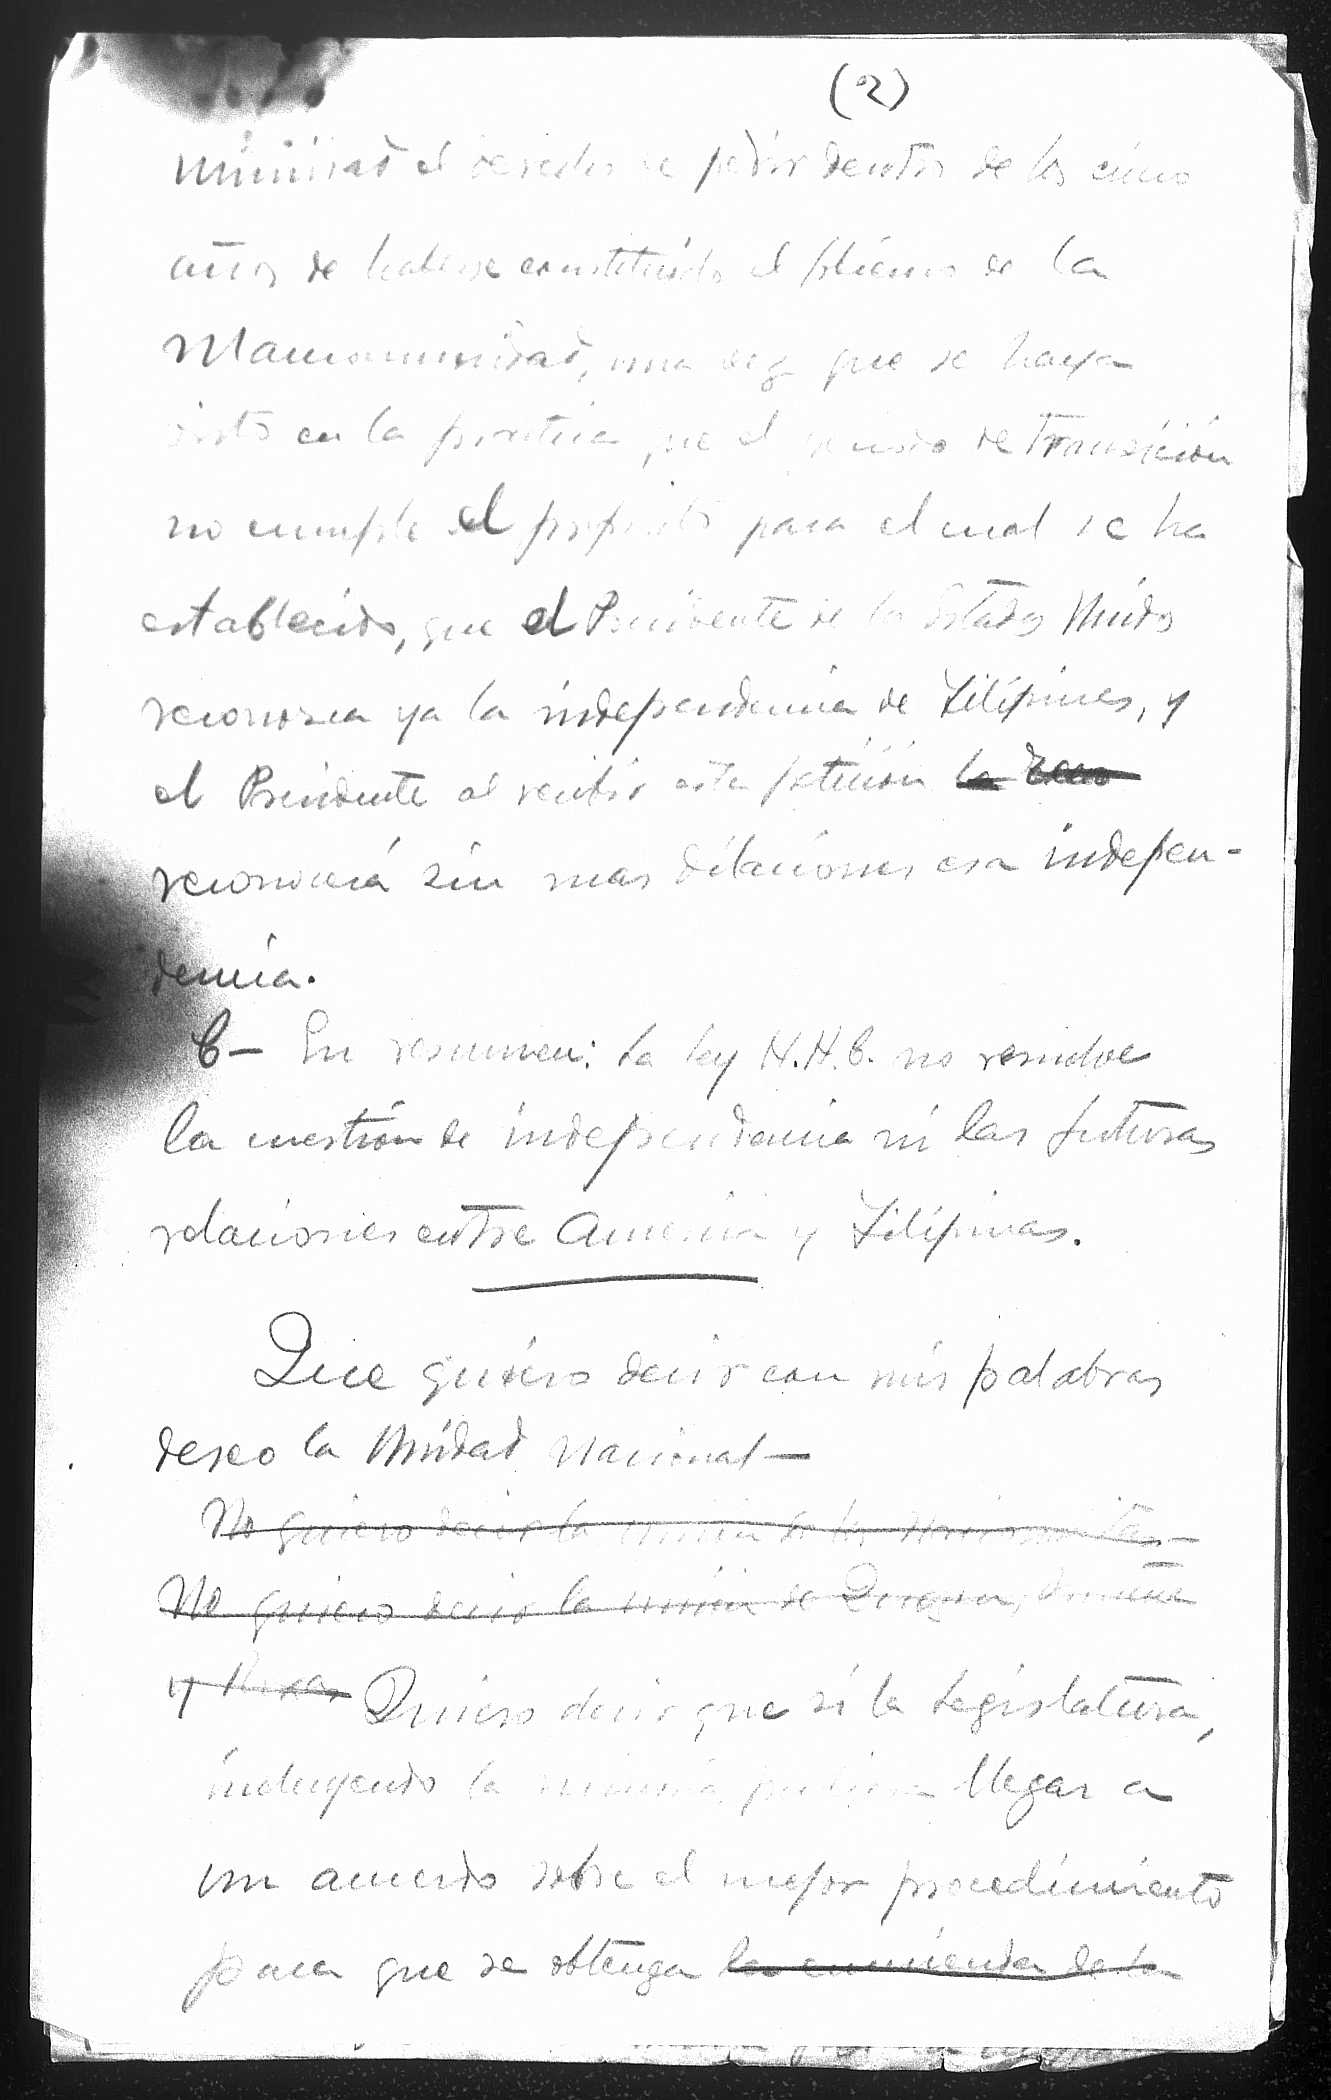 (2)
munidad el derecho de pedir dentro de los cinco
años de haberse constituido el gobierno de la
Mancomunidad, una vez que se haya
visto en la practica que el periodo de transición
no cumple el proposito para el cual se ha
establecido, que el Presidente de los Estados Unidos
reconozca ya la independencia de Filipinas, y
el Presidente al recibir esta petición la reco
reconocerá sin mas dilaciones esa indepen-
dencia.
C— En resumen: La ley H.H.C. no resuelve
la cuestión de independencia ni las futuras
relaciones entre America y Filipinas.
Que quiero decir con mis palabras
deseo la Unidad Nacional—
No quiero decir la unión de los
No quiero decir la unión de Quezon, Osmeña
y Roxas Quiero decir que si la Legislatura,
incluyendo la minoria, pudiera llegar a
un acuerdo sobre el mejor procedimiento
para que se obtenga la enmienda de la